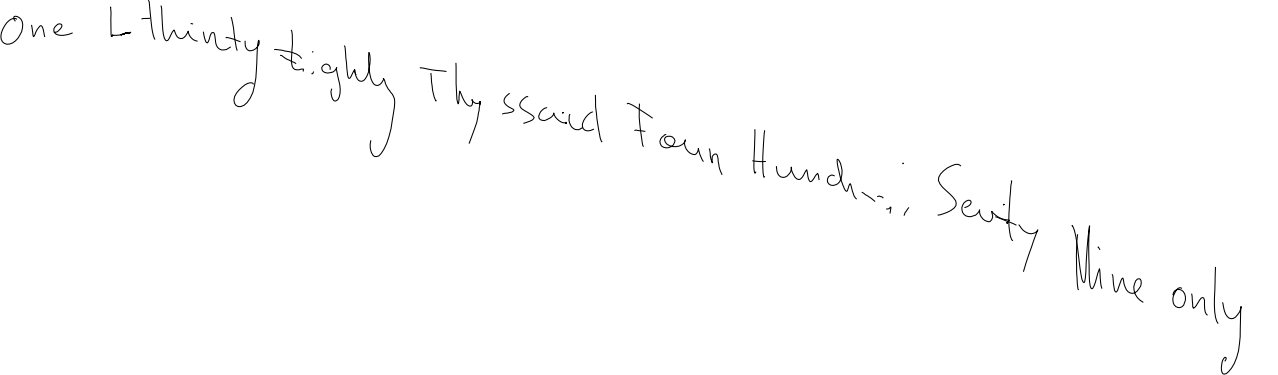 One L thinty Eighly Thyssaid Foun Hundr... Sevity Nine only